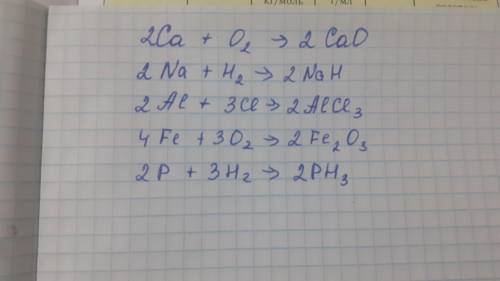 кг/моль г/мл
2Ca + O₂ → 2 CaO
2 Na + H₂ → 2NaH
2Al + 3Cl → 2AlCl₃
4Fe + 3O₂ → 2Fe₂O₃
2P + 3H₂ → 2PH₃